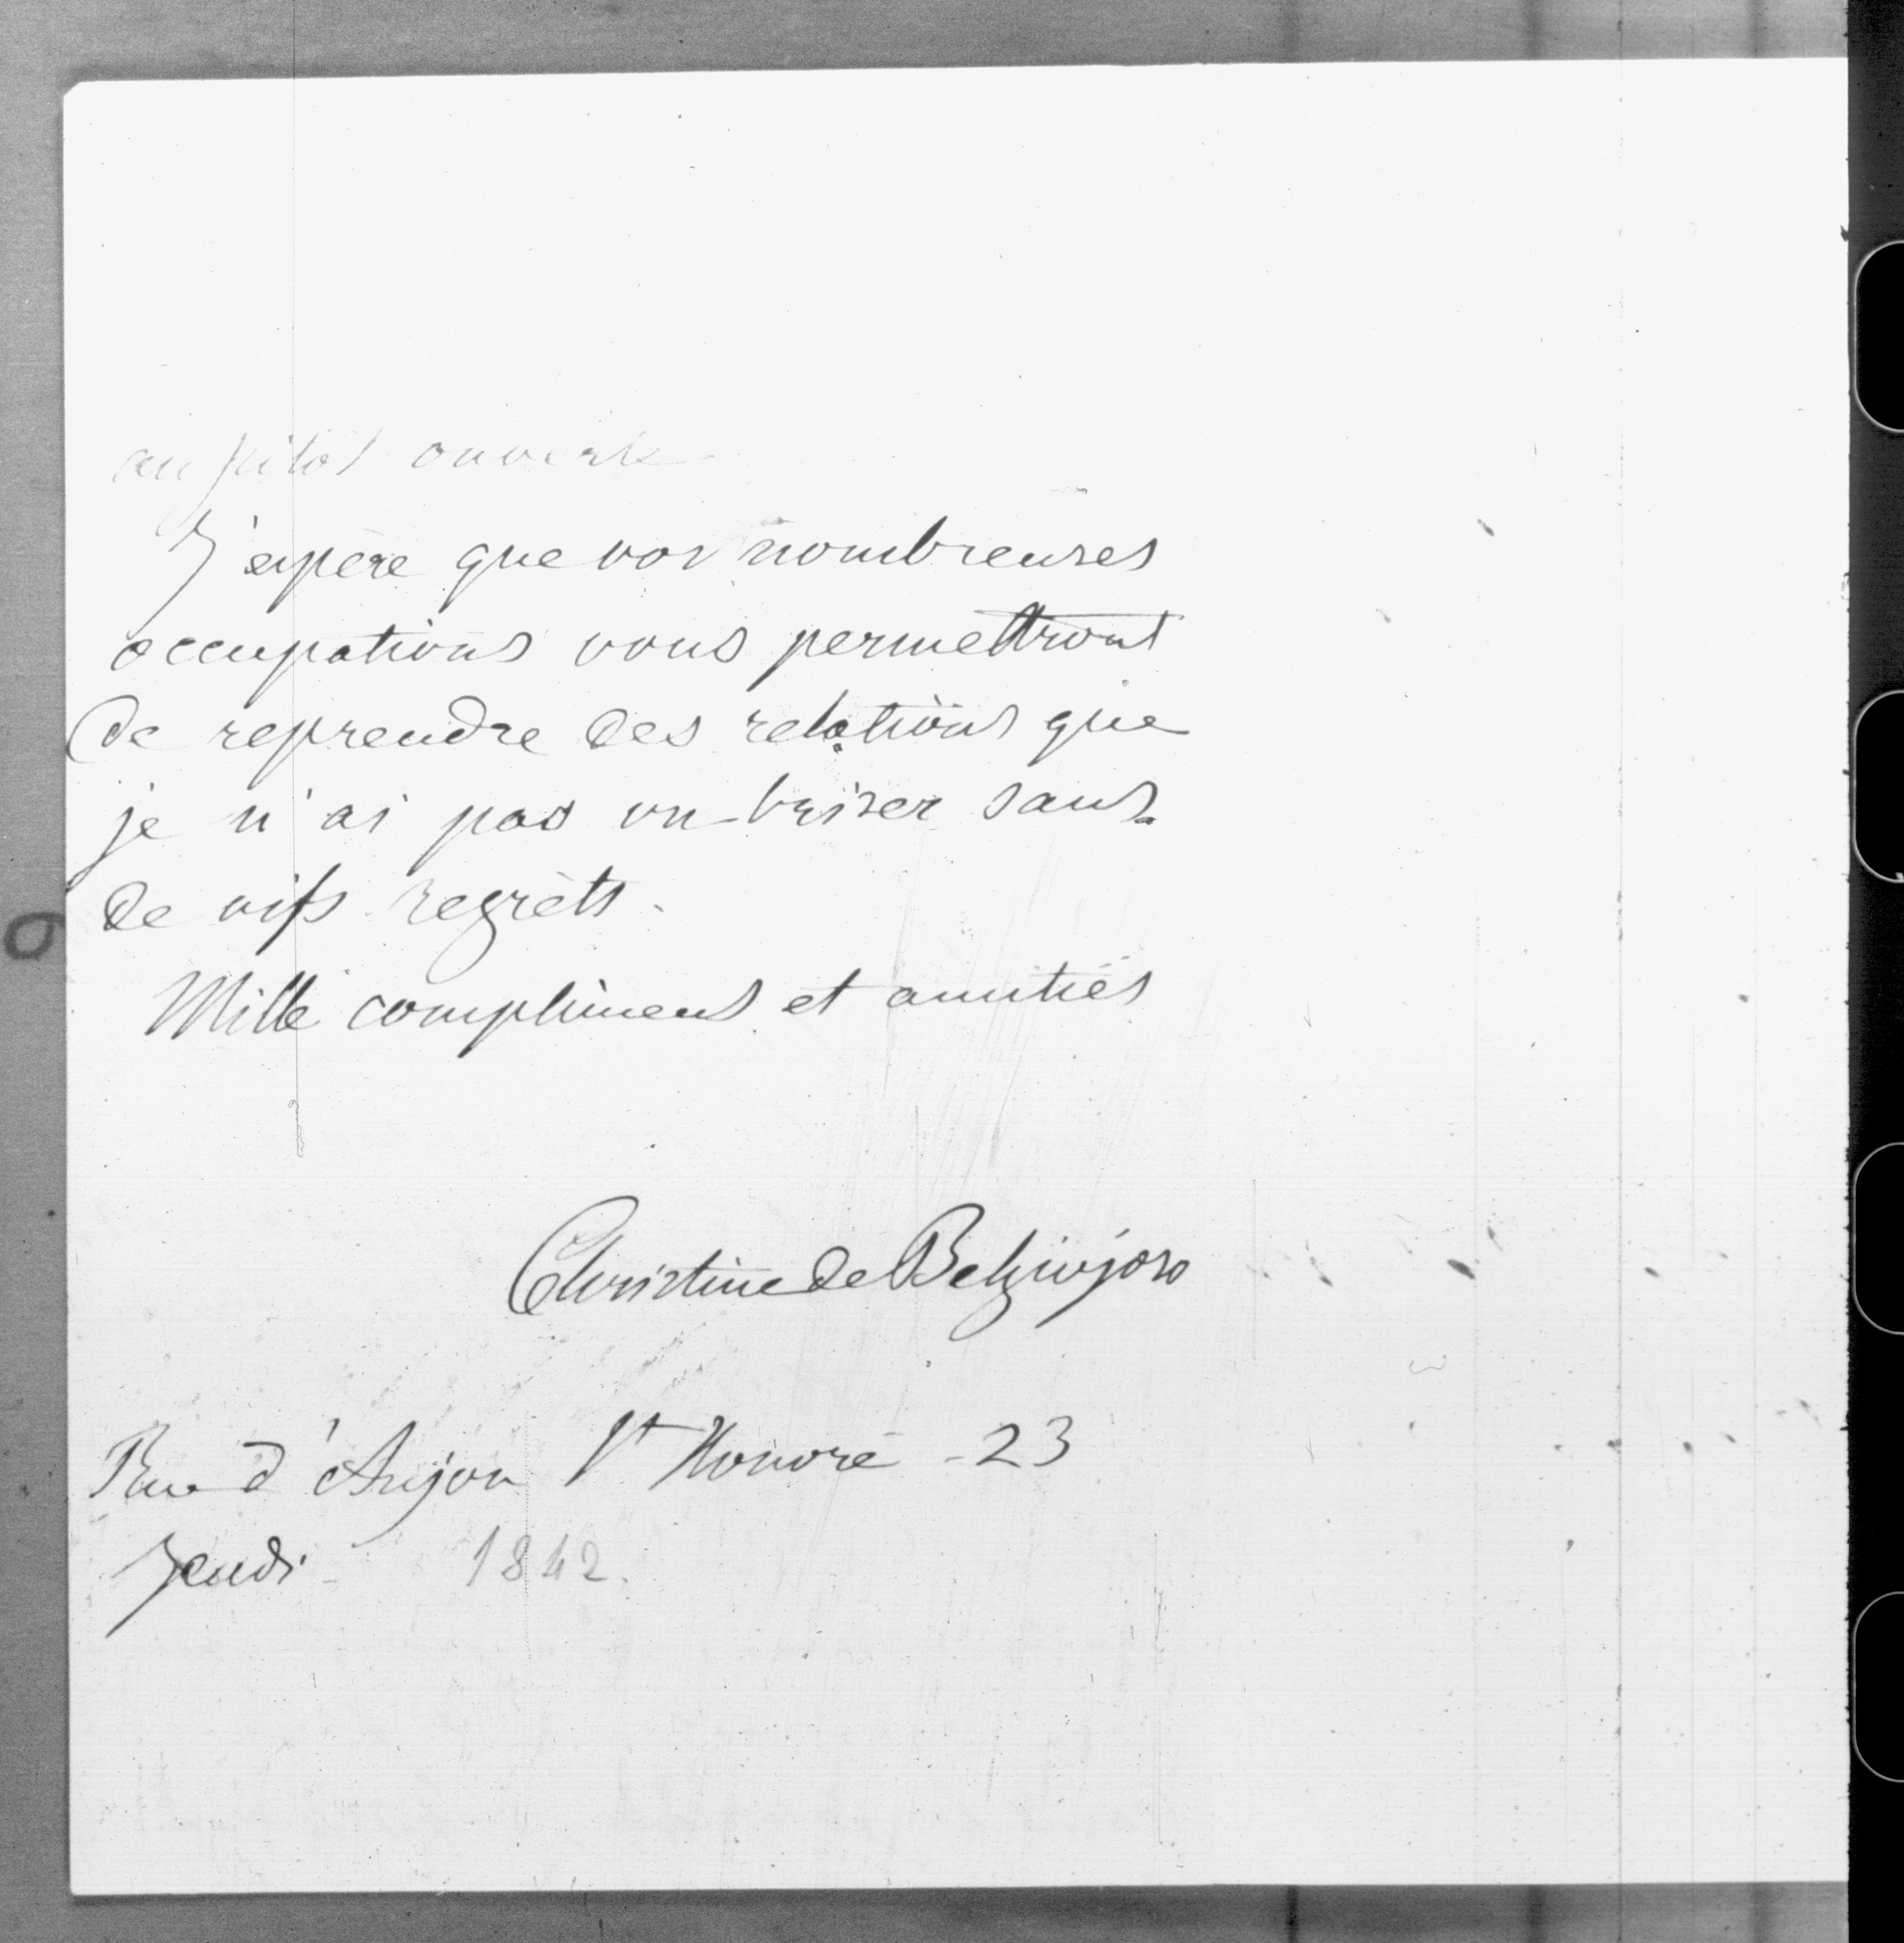 aussitôt ouverte
J'espère que vos nombreuses
occupations vous permettront
de reprendre des relations que
je n'ai pas vu briser sans
de vifs regrèts.
Mille complimens et amitiés
Christine de Belgiojoso
Rue d'Anjou St Honoré - 23
Jeudi - 1842.